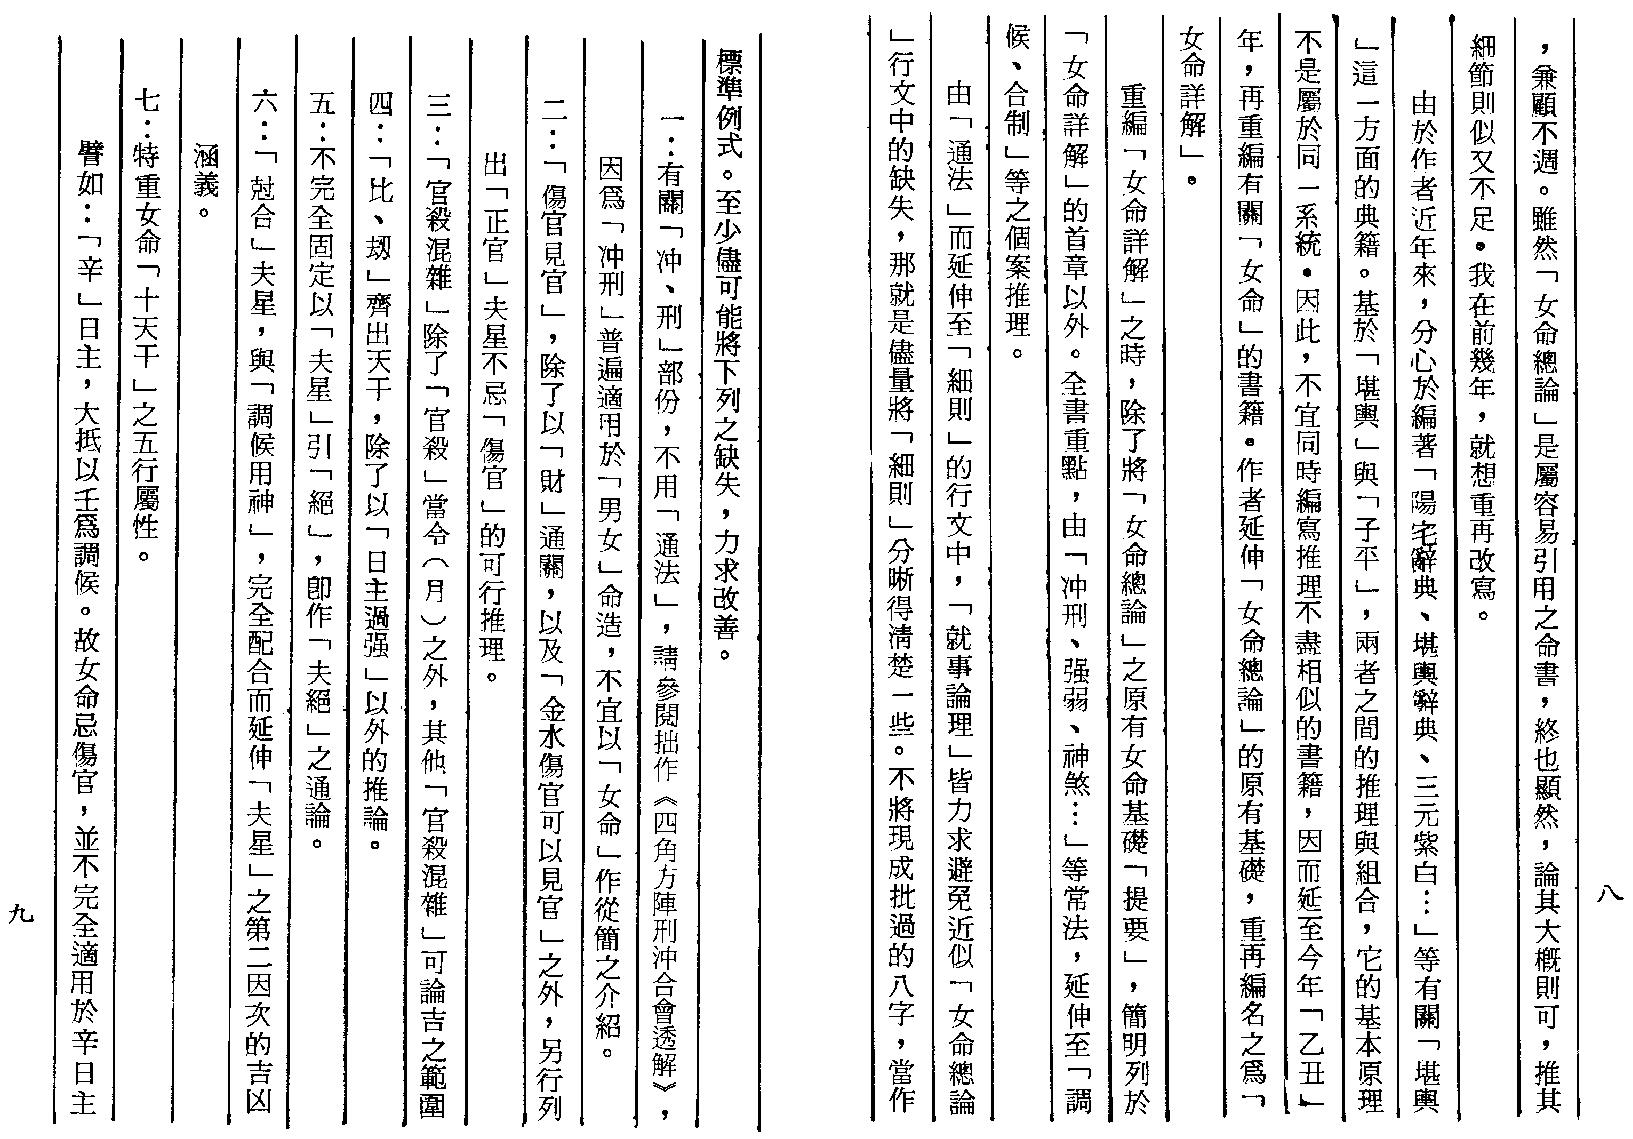 八
，兼顧不週。雖然「女命總論」是屬容易引用之命書，終也顯然，論其大概則可，推其
細節則似又不足。我在前幾年，就想重再改寫。
由於作者近年來，分心於編著「陽宅辭典、堪輿辭典、三元紫白…」等有關「堪輿
」這一方面的典籍。基於「堪輿」與「子平」，兩者之間的推理與組合，它的基本原理
不是屬於同一系統。因此，不宜同時編寫推理不盡相似的書籍，因而延至今年「乙丑」
年，再重編有關「女命」的書籍。作者延伸「女命總論」的原有基礎，重再編名之爲「
女命詳解」。
重編「女命詳解」之時，除了將「女命總論」之原有女命基礎「提要」，簡明列於
「女命詳解」的首章以外。全書重點，由「冲刑、强弱、神煞…」等常法，延伸至「調
候、合制」等之個案推理。
由「通法」而延伸至「細則」的行文中，「就事論理」皆力求避免近似「女命總論
」行文中的缺失，那就是儘量將「細則」分晰得清楚一些。不將現成批過的八字，當作
標準例式。至少儘可能將下列之缺失，力求改善。
一：有關「冲、刑」部份，不用「通法」，請參閱拙作《四角方陣刑沖合會透解》，
因爲「冲刑」普遍適用於「男女」命造，不宜以「女命」作從簡之介紹。
二：「傷官見官」，除了以「財」通關，以及「金水傷官可以見官」之外，另行列
出「正官」夫星不忌「傷官」的可行推理。
三：「官殺混雜」除了「官殺」當令（月）之外，其他「官殺混雜」可論吉之範圍
四：「比、刼」齊出天干，除了以「日主過强」以外的推論。
五：不完全固定以「夫星」引「絕」，卽作「夫絕」之通論。
六：「尅合」夫星，與「調候用神」，完全配合而延伸「夫星」之第二因次的吉凶
涵義。
七：特重女命「十天干」之五行屬性。
譬如：「辛」日主，大抵以壬爲調候。故女命忌傷官，並不完全適用於辛日主
九